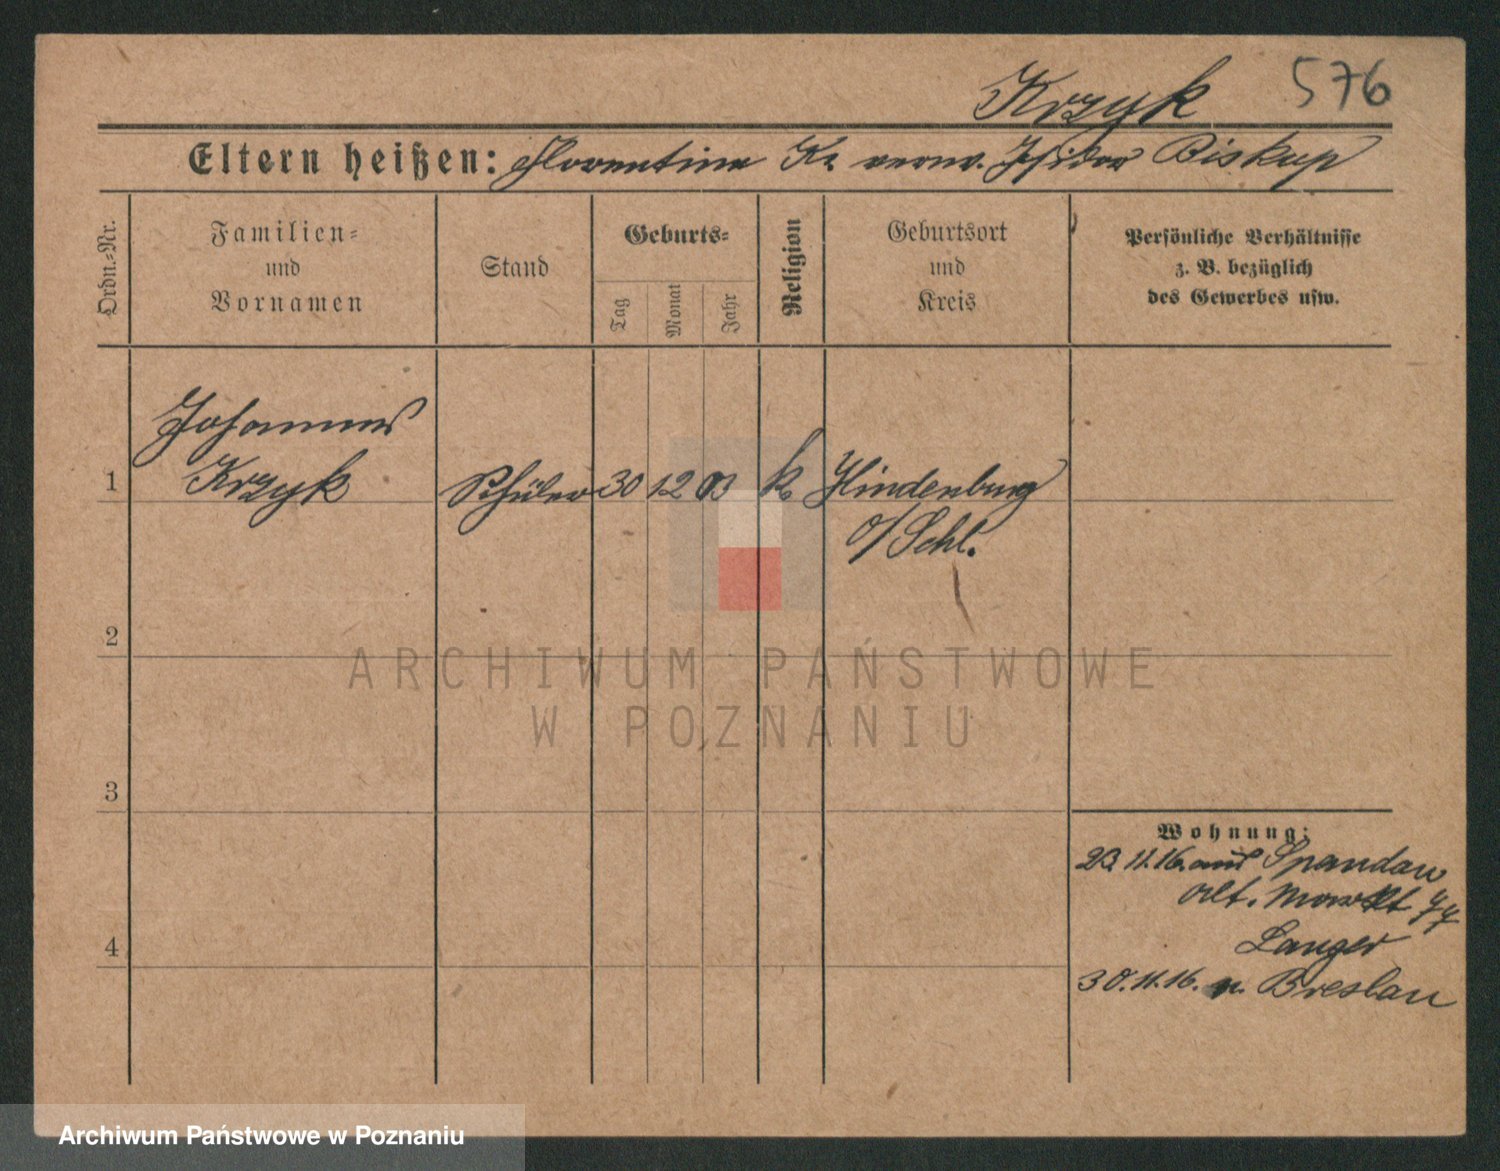 Krzyk 576
Eltern heißen: Florentine Kr. verw. Isidor Biskup
Ordn.-Nr.
Familien-
und
Vornamen
Stand
Geburts-
Tag
Monat
Jahr
Religion
Geburtsort
und
Kreis
Persönliche Verhältnisse
z. B. bezüglich
des Gewerbes usw.
Johannes
1 Krzyk Schüler 30 12 03 k. Hindenburg
O/Schl.
2
3
4
Wohnung:
23.11.16. aus Spandau
Alt. Markt
Langer
30.11.16. n. Breslau
ARCHIWUM PAŃSTWOWE
W POZNANIU
Archiwum Państwowe w Poznaniu